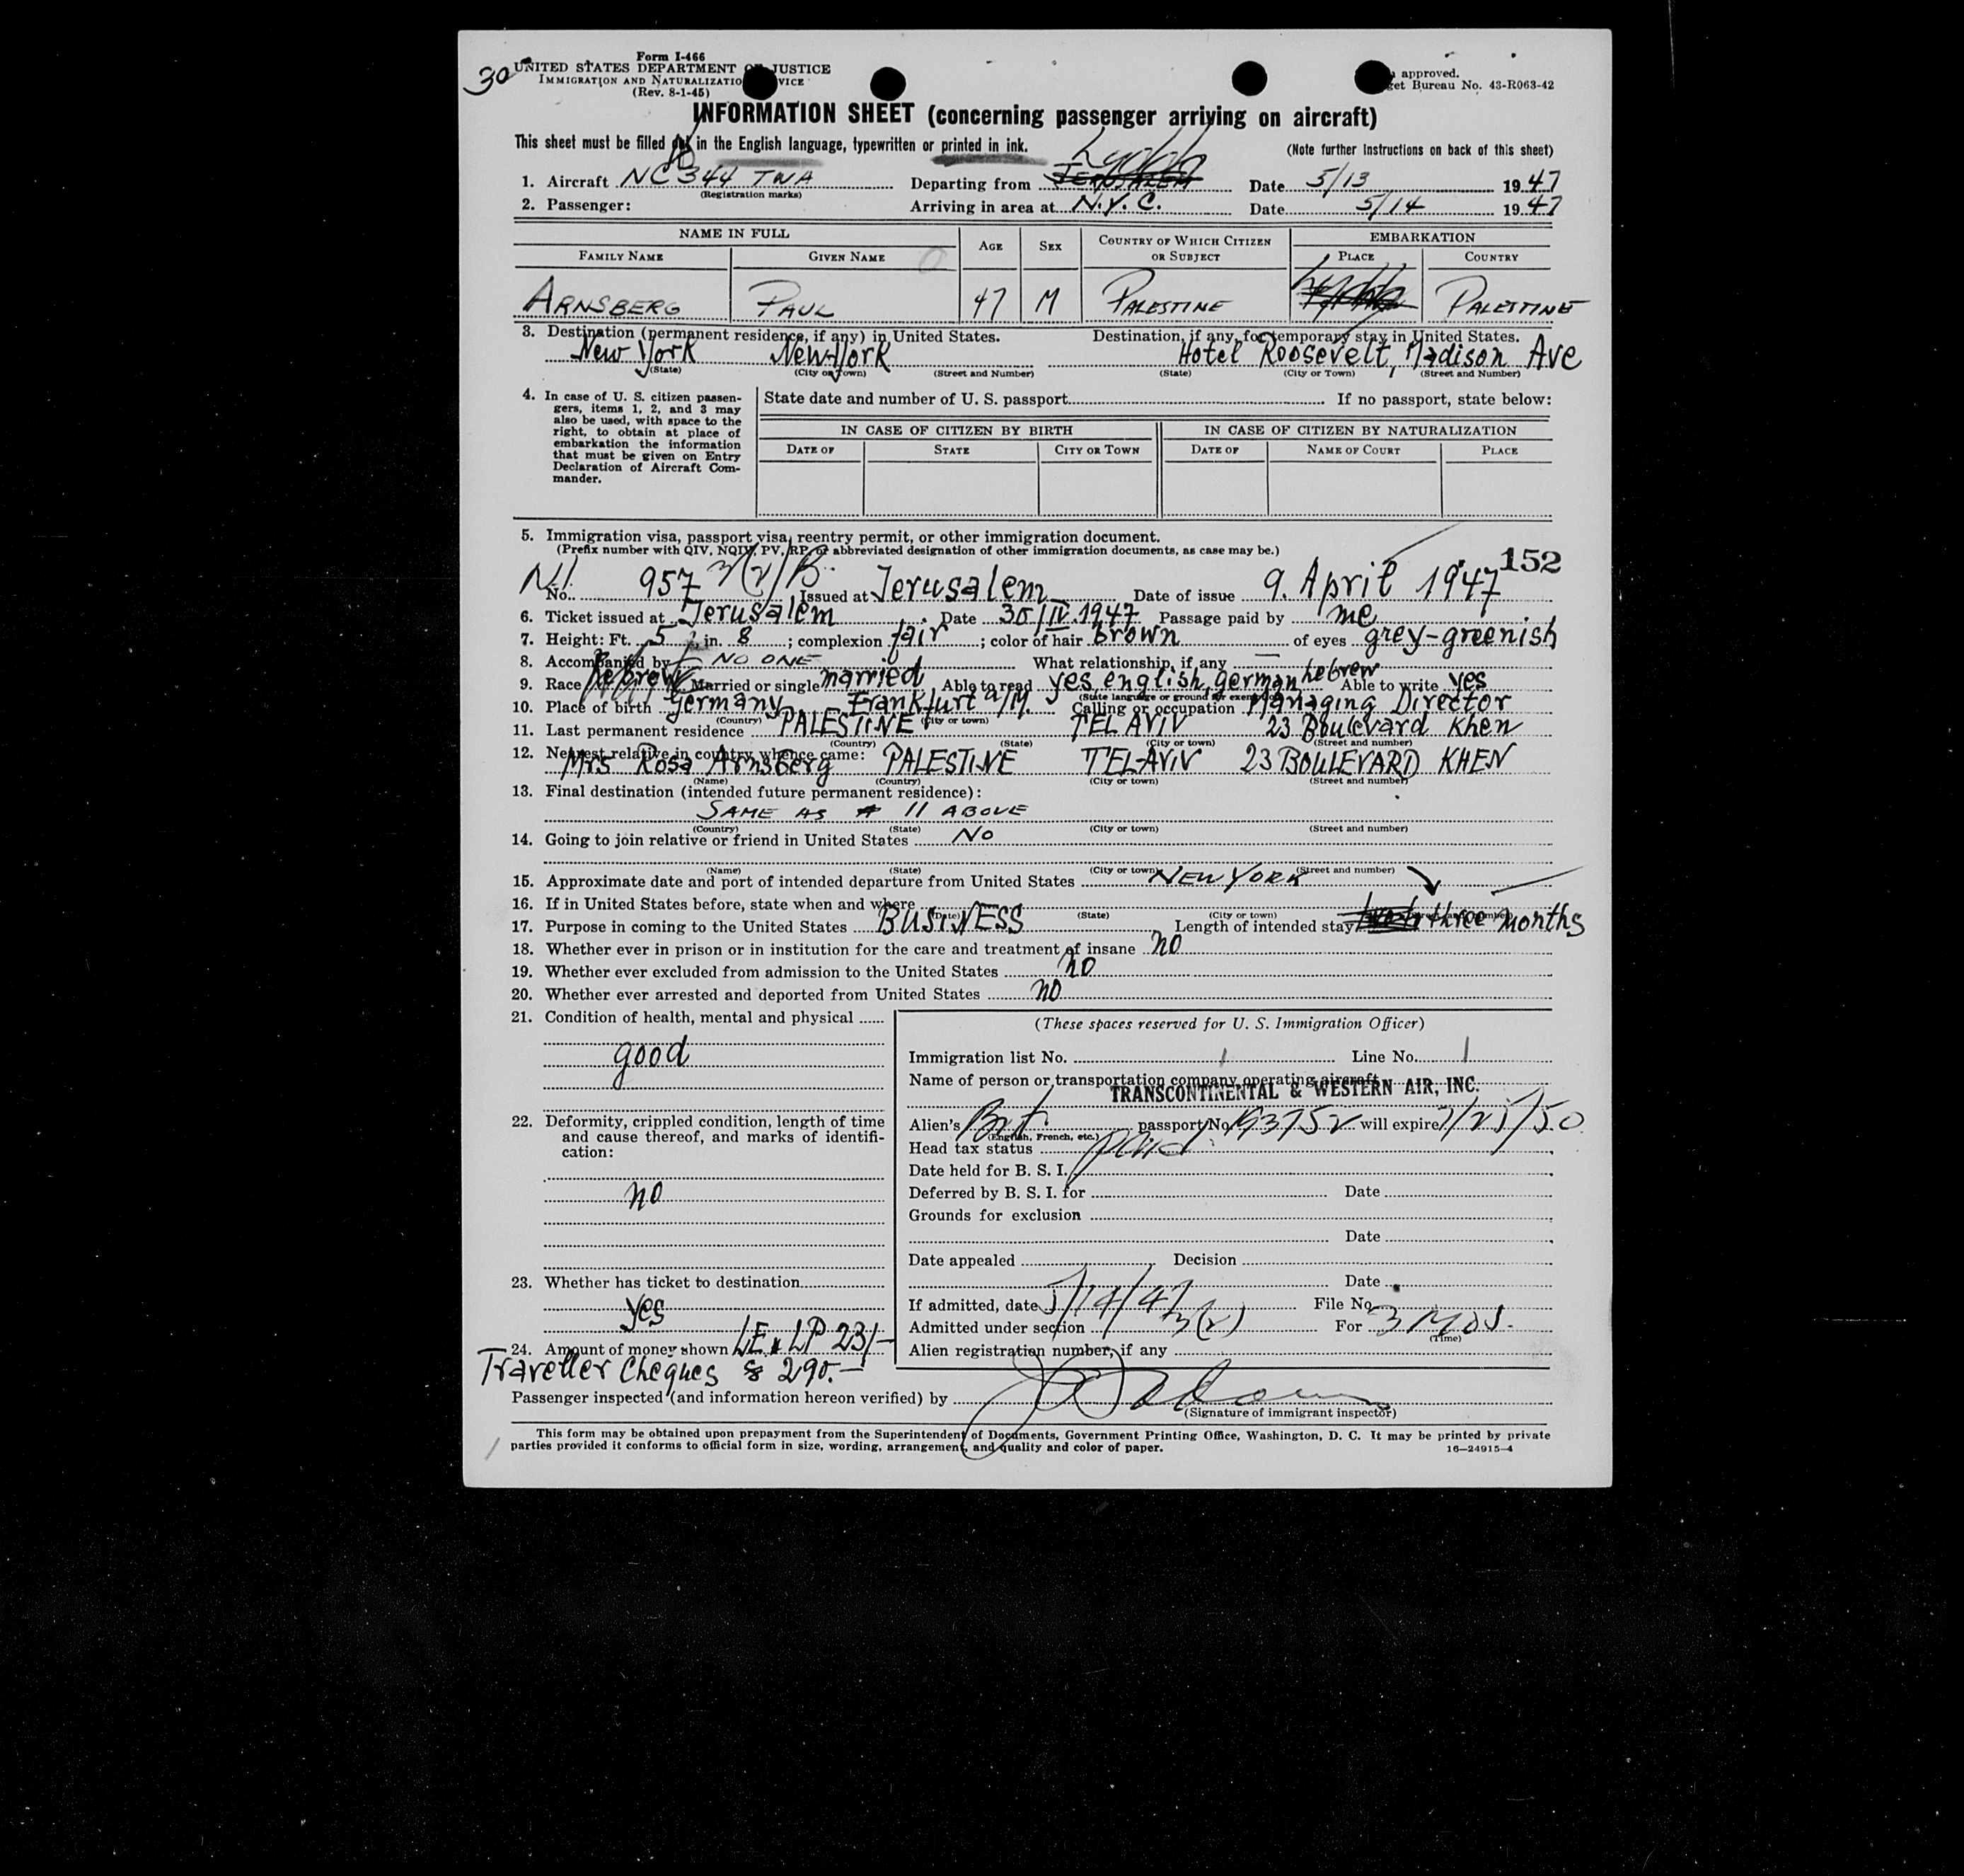 30
Form I-466
UNITED STATES DEPARTMENT OF JUSTICE
IMMIGRATION AND NATURALIZATION SERVICE
(Rev. 8-1-45)
approved.
Budget Bureau No. 43-R063-42
INFORMATION SHEET (concerning passenger arriving on aircraft)
This sheet must be filled out in the English language, typewritten or printed in ink.
(Note further instructions on back of this sheet)
1. Aircraft NC 344 TWA Departing from Lydda Date 5/13 1947
(Registration marks)
2. Passenger: Arriving in area at N.Y.C. Date 5/14 1947
NAME IN FULL AGE SEX COUNTRY OF WHICH CITIZEN OR SUBJECT EMBARKATION
FAMILY NAME GIVEN NAME PLACE COUNTRY
ARNSBERG PAUL 47 M PALESTINE Lydda PALESTINE
3. Destination (permanent residence, if any) in United States. Destination, if any, for temporary stay in United States.
New York New York Hotel Roosevelt, Madison Ave
(State) (City or Town) (Street and Number) (State) (City or Town) (Street and Number)
4. In case of U. S. citizen passengers, items 1, 2, and 3 may
also be used, with space to the
right, to obtain at place of
embarkation the information
that must be given on Entry
Declaration of Aircraft Commander.
State date and number of U. S. passport If no passport, state below:
IN CASE OF CITIZEN BY BIRTH IN CASE OF CITIZEN BY NATURALIZATION
DATE OF STATE CITY OR TOWN DATE OF NAME OF COURT PLACE
5. Immigration visa, passport visa, reentry permit, or other immigration document.
(Prefix number with QIV, NQIV, PV, RP, or abbreviated designation of other immigration documents, as case may be.)
152
No. 957 3(2)/B Issued at Jerusalem Date of issue 9. April 1947
6. Ticket issued at Jerusalem Date 30/IV.1947 Passage paid by me
7. Height: Ft. 5 in. 8; complexion fair; color of hair brown of eyes grey-greenish
8. Accompanied by NO ONE What relationship, if any —
9. Race hebrew Married or single married Able to read yes, english, german, hebrew Able to write yes
(State language or ground for exemption)
10. Place of birth Germany Frankfurt a/M. Calling or occupation Managing Director
(Country) (City or town)
11. Last permanent residence PALESTINE TEL AVIV 23 Boulevard Khen
(Country) (State) (City or town) (Street and number)
12. Nearest relative in country whence came:
Mrs Rosa Arnsberg PALESTINE TEL-AVIV 23 BOULEVARD KHEN
(Name) (Country) (City or town) (Street and number)
13. Final destination (intended future permanent residence):
SAME AS # 11 ABOVE
(Country) (State) (City or town) (Street and number)
14. Going to join relative or friend in United States No
(Name) (State) (City or town) (Street and number)
15. Approximate date and port of intended departure from United States NEW YORK
16. If in United States before, state when and where
(Date) (State) (City or town)
17. Purpose in coming to the United States BUSINESS Length of intended stay three months
18. Whether ever in prison or in institution for the care and treatment of insane no
19. Whether ever excluded from admission to the United States no
20. Whether ever arrested and deported from United States no
21. Condition of health, mental and physical
good
22. Deformity, crippled condition, length of time
and cause thereof, and marks of identification:
no
23. Whether has ticket to destination
yes
24. Amount of money shown LE & LP 23/—
Traveller Cheques $ 290.—
(These spaces reserved for U. S. Immigration Officer)
Immigration list No. 1 Line No. 1
Name of person or transportation company operating aircraft
TRANSCONTINENTAL & WESTERN AIR, INC.
Alien's Brit passport No. 193752 will expire 7/25/50
(English, French, etc.)
Head tax status paid
Date held for B. S. I.
Deferred by B. S. I. for Date
Grounds for exclusion
Date
Date appealed Decision
Date
If admitted, date 5/14/47 File No.
Admitted under section 3(2) For 3 MOS.
(Time)
Alien registration number, if any
Passenger inspected (and information hereon verified) by
(Signature of immigrant inspector)
This form may be obtained upon prepayment from the Superintendent of Documents, Government Printing Office, Washington, D. C. It may be printed by private
parties provided it conforms to official form in size, wording, arrangement, and quality and color of paper.
16—24915-4